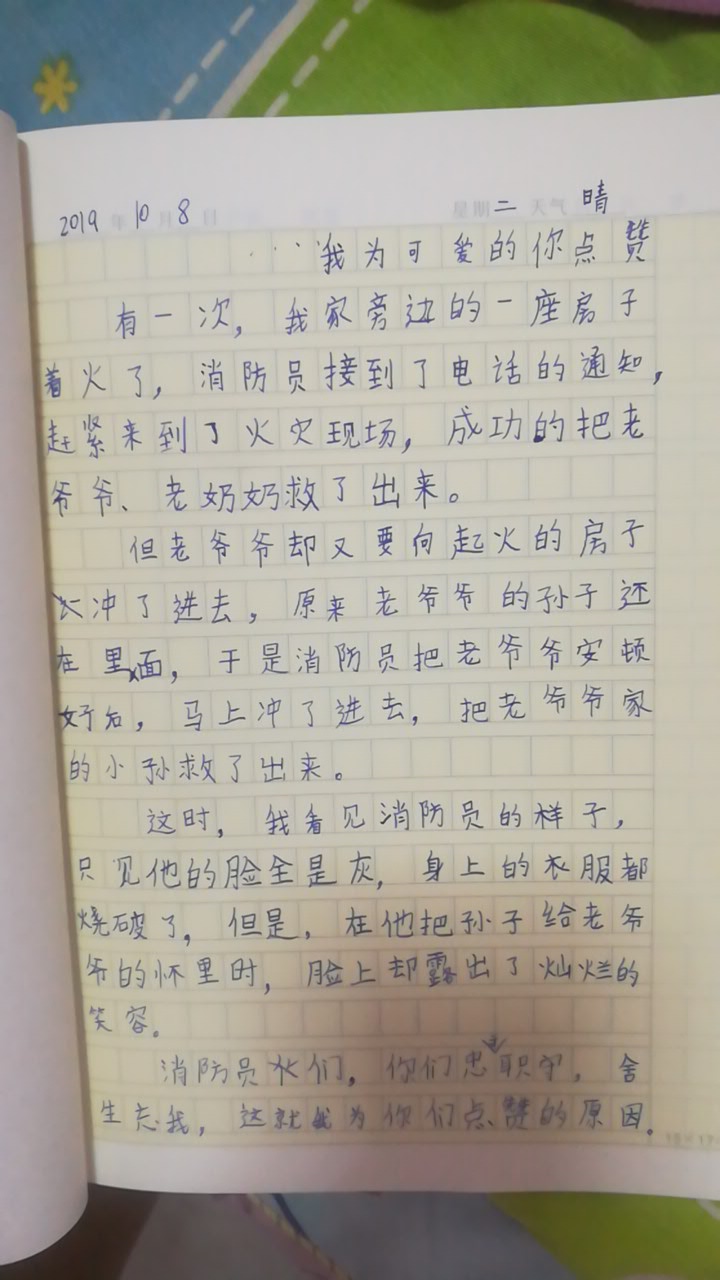 2019年10月8日 星期二 天气 晴
我为可爱的你点赞
有一次，我家旁边的一座房子
着火了，消防员接到了电话的通知，
赶紧来到了火灾现场，成功的把老
爷爷、老奶奶救了出来。
但老爷爷却又要向起火的房子
冲了进去，原来老爷爷的孙子还
在里面，于是消防员把老爷爷安顿
好后，马上冲了进去，把老爷爷家
的小孙救了出来。
这时，我看见消防员的样子，
只见他的脸全是灰，身上的衣服都
烧破了，但是，在他把孙子给老爷
爷的怀里时，脸上却露出了灿烂的
笑容。
消防员们，你们忠于职守，舍
生忘我，这就我为你们点赞的原因。